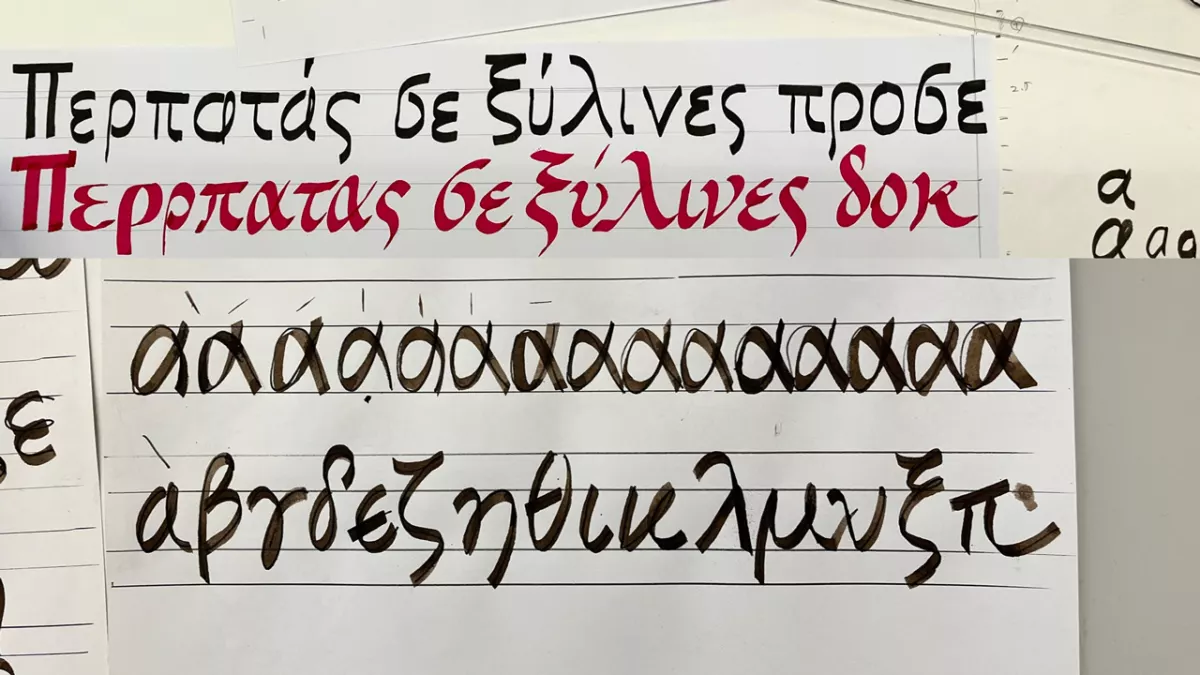 Περπατάς σε ξύλινες προσε
Περρπατας σε ξύλινες δοκ
2.5
α
α α α
ε
α α α α α α α α α α α α α α α
α β γ δ ε ζ η θ ι κ λ μ ν ξ π